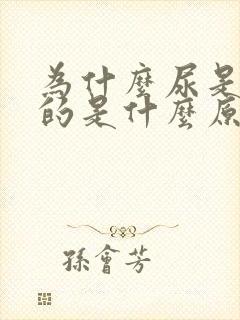 為什麼尿是
的是什麼原
孫會芳